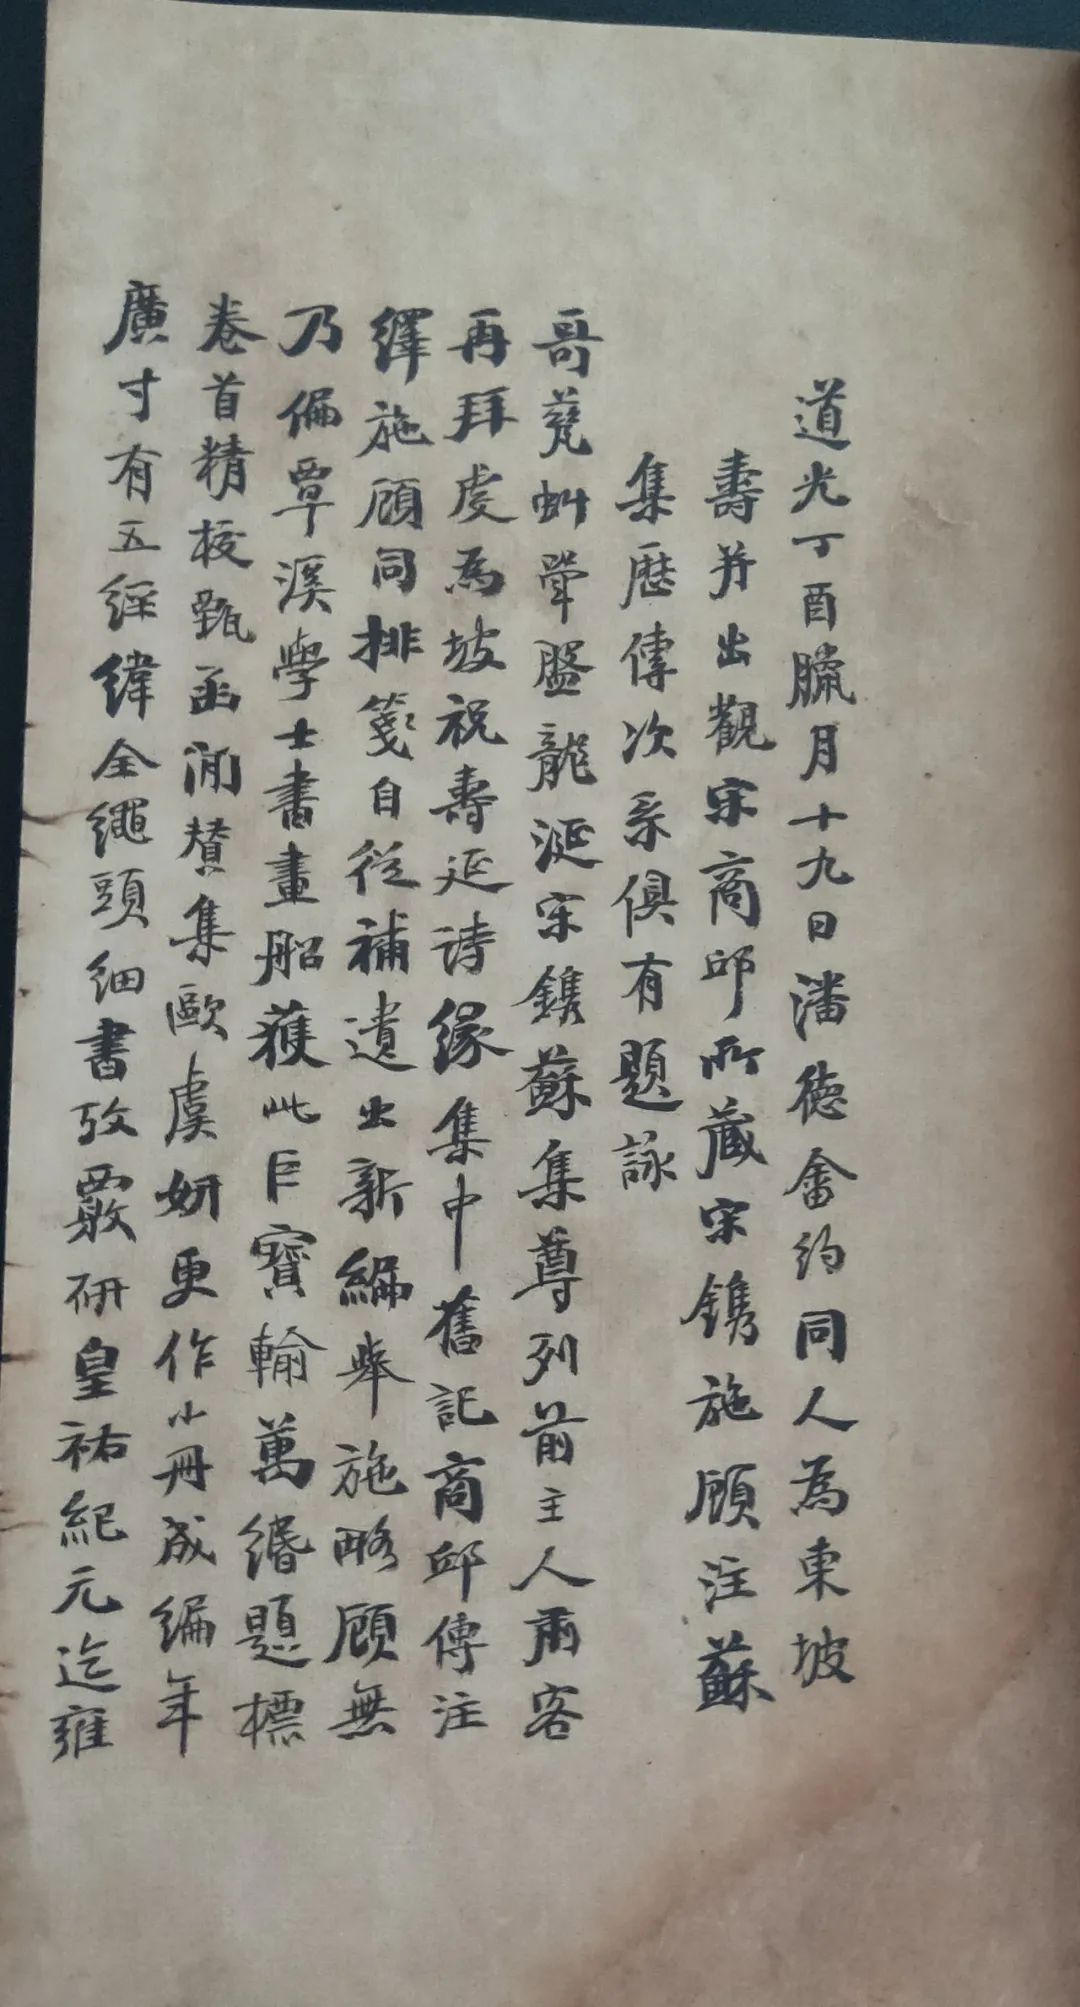 道光丁酉臘月十九日潘德畬約同人為東坡
壽并出觀宋商邱所藏宋鐫施顧注蘇
集歷傳次系俱有題詠
哥甆蚪犖盤龍涎宋鐫蘇集尊列前主人肅客
再拜虔為坡祝壽延詩緣集中舊記商邱傳注
繹施顧同排箋自從補遺出新編舉施略顧無
乃偏覃溪學士書畫船獲此巨寶輸萬緡題標
卷首精校甄函澖贊集歐虞妍更作小冊成編年
廣寸有五經緯全繩頭細書攷覈研皇祐紀元迄雍